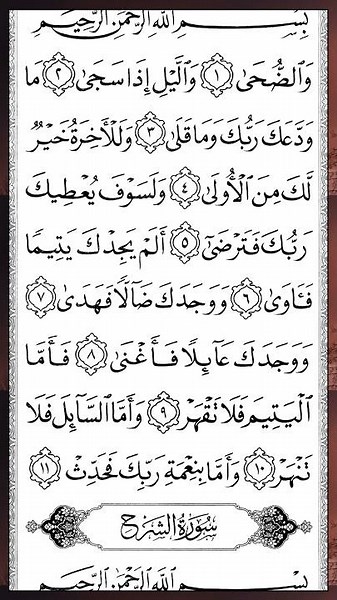 بِسْمِ ٱللَّهِ ٱلرَّحْمَٰنِ ٱلرَّحِيمِ
وَٱلضُّحَىٰ ١ وَٱلَّيْلِ إِذَا سَجَىٰ ٢ مَا
وَدَّعَكَ رَبُّكَ وَمَا قَلَىٰ ٣ وَلَلْأَخِرَةُ خَيْرٌ
لَّكَ مِنَ ٱلْأُولَىٰ ٤ وَلَسَوْفَ يُعْطِيكَ
رَبُّكَ فَتَرْضَىٰٓ ٥ أَلَمْ يَجِدْكَ يَتِيمًا
فَـَٔاوَىٰ ٦ وَوَجَدَكَ ضَآلًّا فَهَدَىٰ ٧
وَوَجَدَكَ عَآئِلًا فَأَغْنَىٰ ٨ فَأَمَّا
ٱلْيَتِيمَ فَلَا تَقْهَرْ ٩ وَأَمَّا ٱلسَّآئِلَ فَلَا
تَنْهَرْ ١٠ وَأَمَّا بِنِعْمَةِ رَبِّكَ فَحَدِّثْ ١١
سُورَةُ الشَّرْحِ
بِسْمِ ٱللَّهِ ٱلرَّحْمَٰنِ ٱلرَّحِيمِ